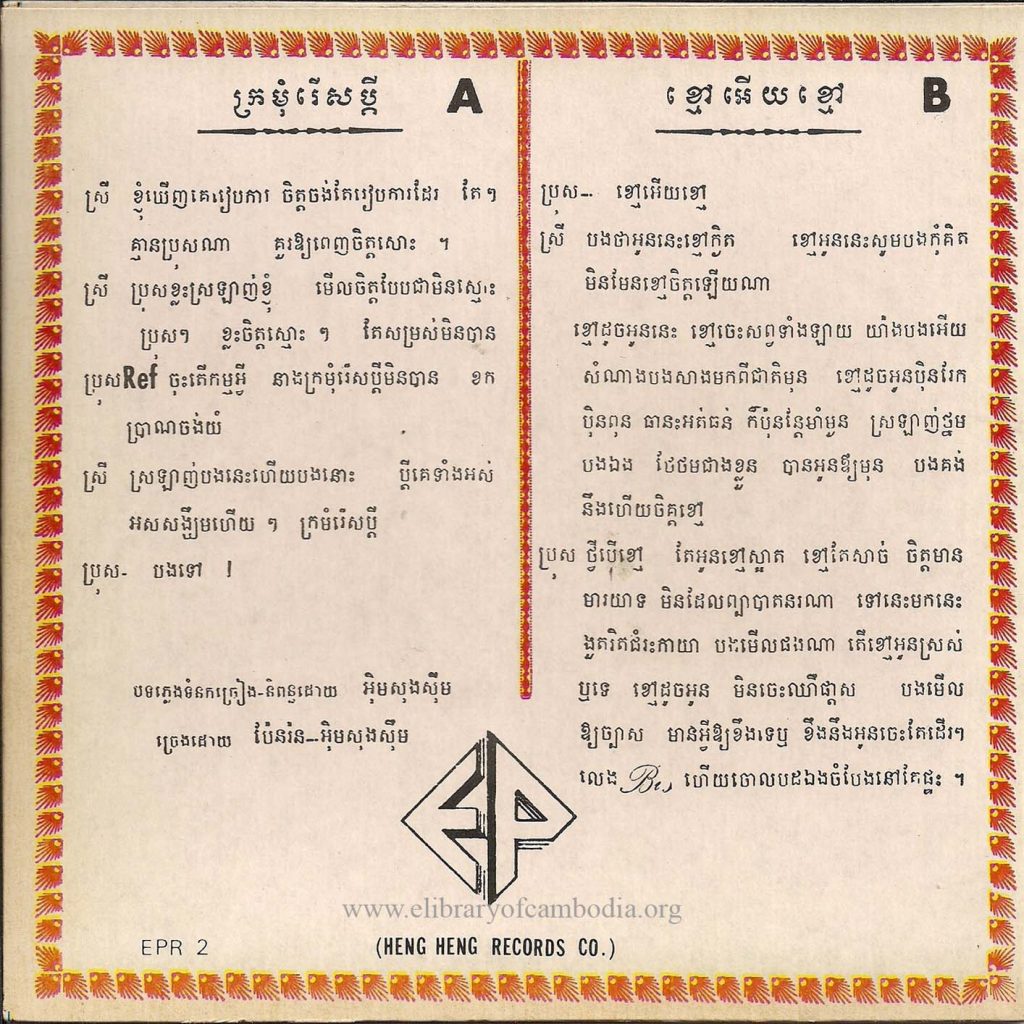 ក្រមុំរើសប្ដី A
ស្រី ខ្ញុំឃើញគេរៀបការ ចិត្តចង់តែរៀបការដែរ តែៗ
គ្មានប្រុសណា គួរឱ្យពេញចិត្តសោះ ។
ស្រី ប្រុសខ្លះស្រឡាញ់ខ្ញុំ មើលចិត្តបែបជាមិនស្មោះ
ប្រុសៗ ខ្លះចិត្តស្មោះ ៗ តែសម្រស់មិនបាន
ប្រុស Ref ចុះតើកម្មអ្វី នាងក្រមុំរើសប្ដីមិនបាន ខក
ប្រាណចង់យំ
ស្រី ស្រឡាញ់បងនេះហើយបងនោះ ប្ដីគេទាំងអស់
អសសង្ឃឹមហើយ ៗ ក្រមំរើសប្ដី
ប្រុស- បងទៅ !
បទភ្លេងទំនុកច្រៀង-និពន្ធដោយ អ៊ិមសុងស៊ឺម
ច្រៀងដោយ ប៉ែនរ៉ន---អ៊ិមសុងស៊ឺម
ខ្មៅអើយខ្មៅ B
ប្រុស--- ខ្មៅអើយខ្មៅ
ស្រី បងថាអូននេះខ្មៅក្ងិត ខ្មៅអូននេះសូមបងកុំគិត
មិនមែនខ្មៅចិត្តឡើយណា
ខ្មៅដូចអូននេះ ខ្មៅចេះសព្វទាំងឡាយ យ៉ាងបងអើយ
សំណាងបងសាងមកពីជាតិមុន ខ្មៅដូចអូនប៉ិនរែក
ប៉ិនពុន ធានះអត់ធន់ ក៏ប៉ុន្តែមាំមួន ស្រឡាញ់ថ្នម
បងឯង ថែថមជាងខ្លួន បានអូនឱ្យមុន បងគង់
នឹងហើយចិត្តខ្មៅ
ប្រុស ថ្វីបើខ្មៅ តែអូនខ្មៅស្អាត ខ្មៅតែសាច់ ចិត្តមាន
មារយាទ មិនដែលព្យាបាតនរណា ទៅនេះមកនេះ
ងួតរិតជំរះកាយា បងមើលផងណា តើខ្មៅអូនស្រស់
ឬទេ ខ្មៅដូចអូន មិនចេះឈឺផ្តាស បងមើល
ឱ្យច្បាស មានអ្វីឱ្យខឹងទេឬ ខឹងនឹងអូនចេះតែដើរៗ
លេង Bis ហើយចោលបដឯងចំបែងនៅតែផ្ទះ ។
EP
www.elibraryofcambodia.org
EPR 2 (HENG HENG RECORDS CO.)